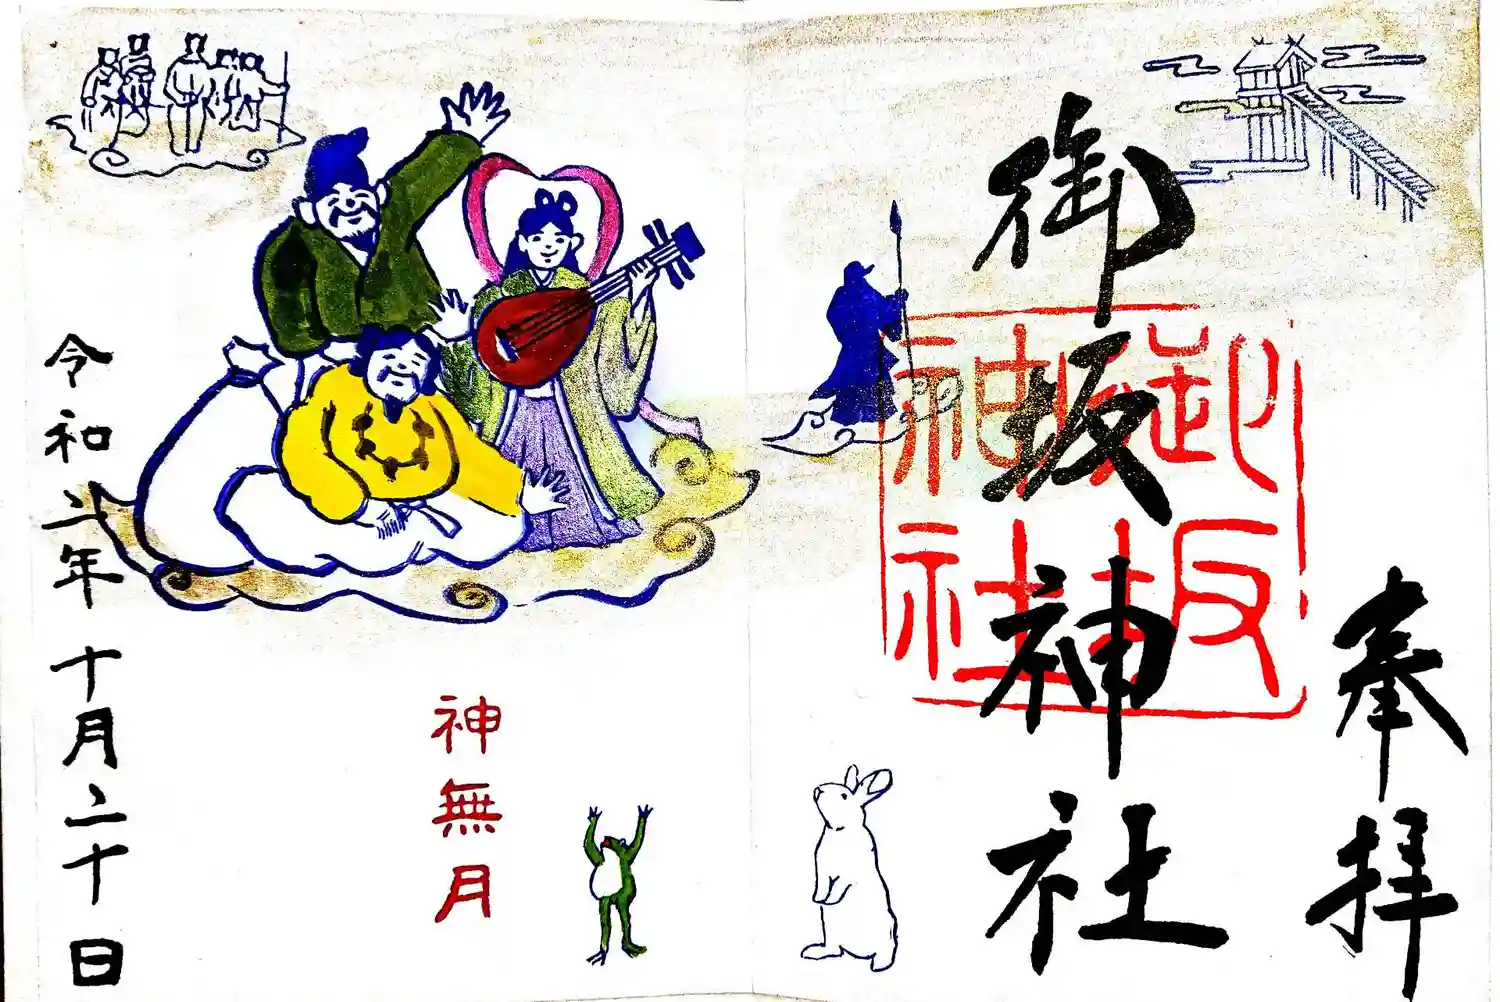 奉拝
御坂神社
御坂神社
神無月
令和二年十月二十日